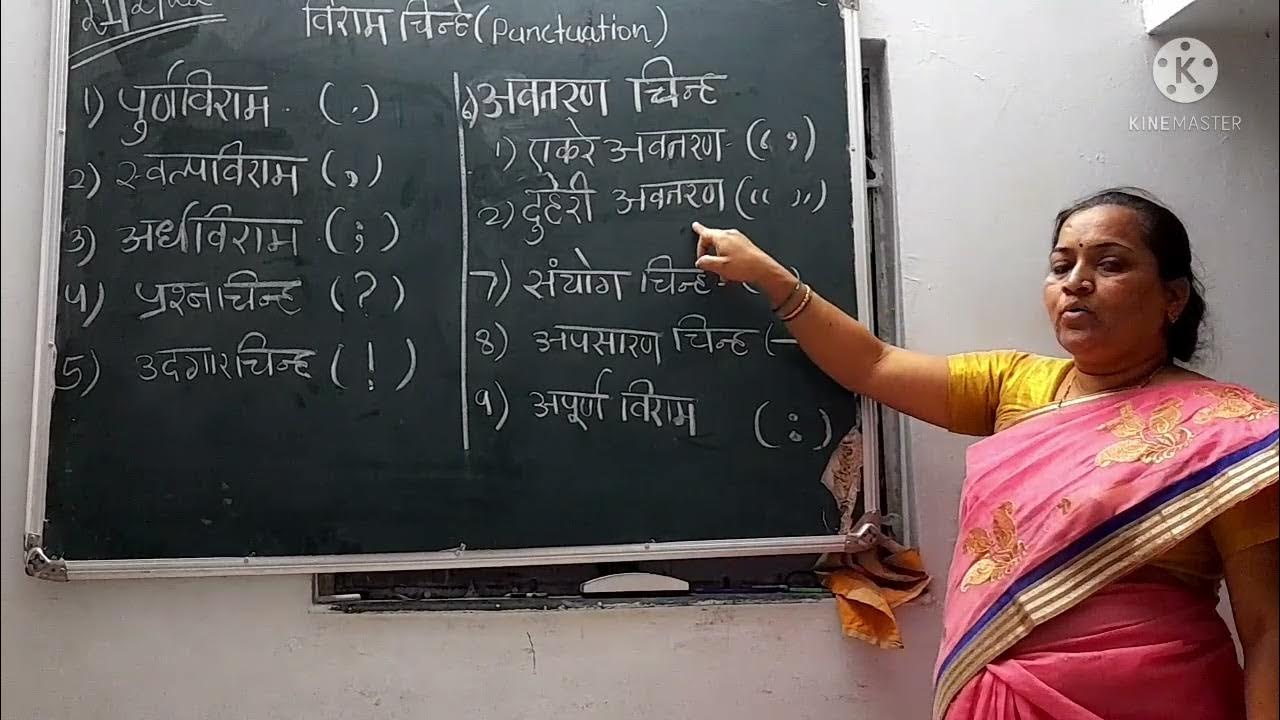 विराम चिन्हे (Punctuation)
1) पुर्णविराम. (.)
2) स्वल्पविराम (,)
3) अर्धविराम. (;)
४) प्रश्नचिन्ह (?)
5) उदगारचिन्ह (!)
6) अवतरण चिन्ह
1) एकेरे अवतरण - (‘ ’)
2) दुहेरी अवतरण (“ ”)
7) संयोग चिन्ह - (
8) अपसारण चिन्ह (—
९) अपूर्ण विराम (:)
K
KINEMASTER